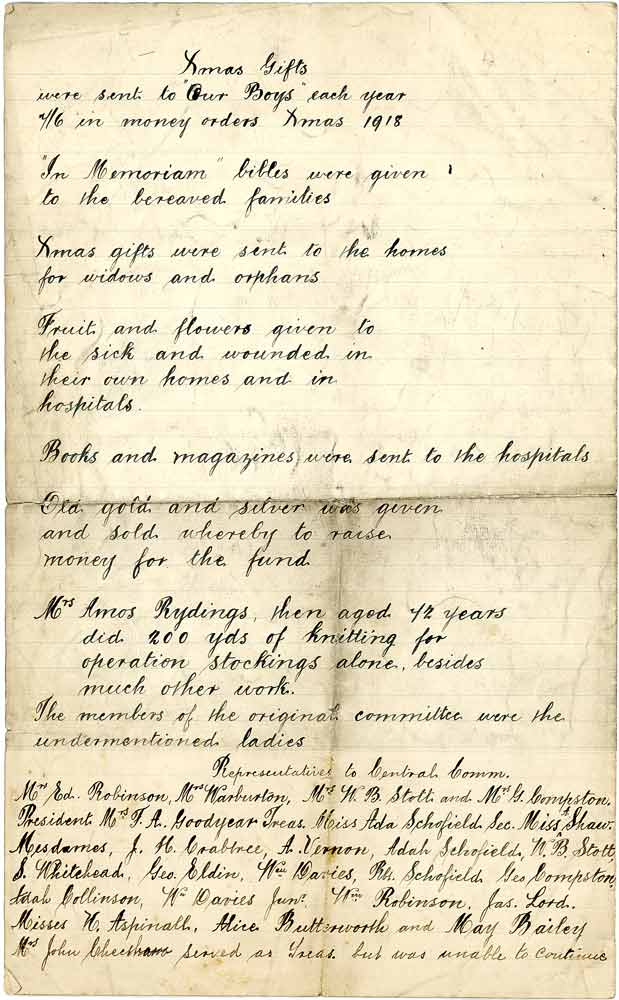 Xmas Gifts
were sent to "Our Boys" each year
7/6 in money orders Xmas 1918
"In Memoriam" bibles were given
to the bereaved families
Xmas gifts were sent to the homes
for widows and orphans
Fruit and flowers given to
the sick and wounded in
their own homes and in
hospitals.
Books and magazines were sent to the hospitals
Old gold and silver was given
and sold whereby to raise
money for the fund
Mrs Amos Rydings, then aged 72 years
did 200 yds of knitting for
operation stockings alone, besides
much other work.
The members of the original committee were the
undermentioned ladies
Representatives to Central Comm.
Mrs Ed. Robinson, Mrs Warburton, Mrs W. B. Stott and Mrs G. Compston.
President Mrs F. A. Goodyear Treas. Miss Ada Schofield Sec. Miss A Shaw.
Mesdames, J. H. Crabtree, A. Vernon, Adah Schofield, W. B. Stott,
S. Whitehead, Geo. Eldin, Wm Davies, Rt. Schofield Geo Compston,
Adah Collinson, Wm Davies Junr. Wm Robinson, Jas. Lord.
Misses H. Aspinall, Alice Butterworth and May Bailey
Mrs John Cheetham served as Treas. but was unable to continue